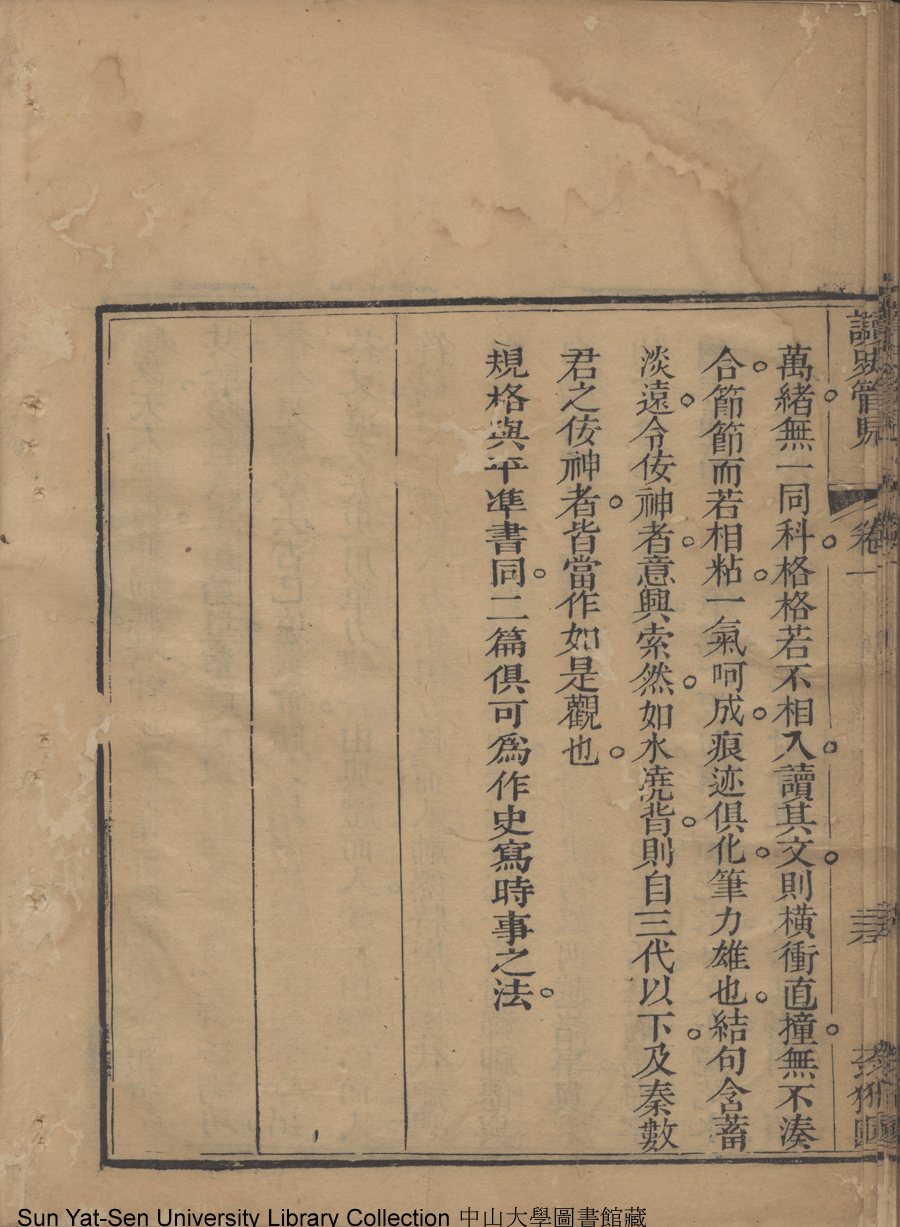 萬緒無一同科格格若不相入讀其文則橫衝直撞無不湊
合節節而若相粘一氣呵成痕迹俱化筆力雄也結句含蓄
淡遠令佞神者意興索然如水澆背則自三代以下及秦數
君之佞神者皆當作如是觀也
規格與平準書同二篇俱可為作史寫時事之法
讀史管見
卷一
Sun Yat-Sen University Library Collection 中山大學圖書館藏